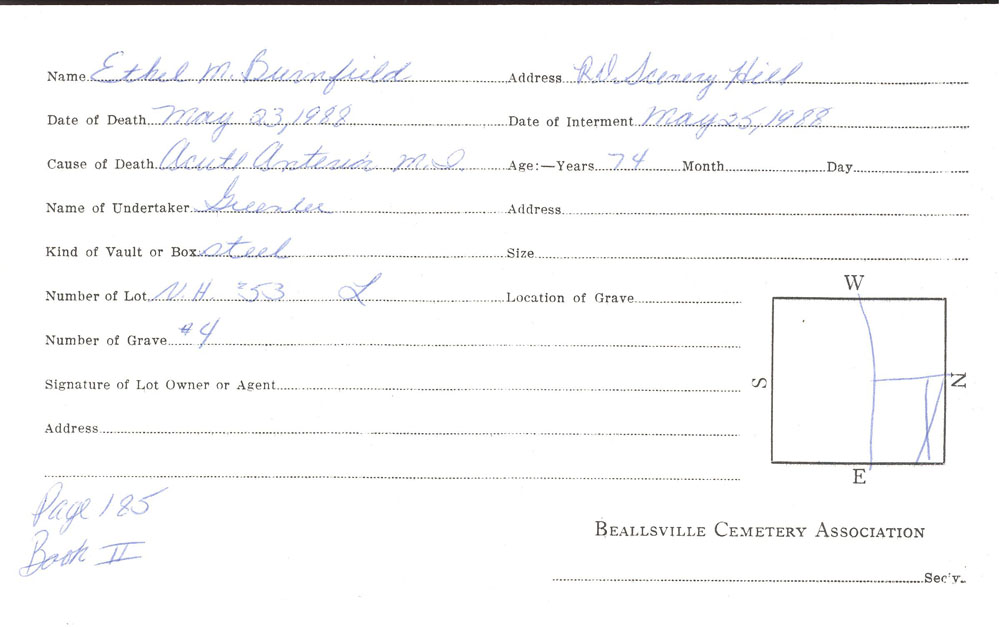 Name Ethel M. Burnfield Address R.D. Scenery Hill
Date of Death May 23, 1988 Date of Interment May 25, 1988
Cause of Death Acute Anterior M.I. Age:—Years 74 Month Day
Name of Undertaker Greenlee Address
Kind of Vault or Box steel Size
Number of Lot N.H. 353 L Location of Grave
Number of Grave #4
Signature of Lot Owner or Agent
Address
W
S
N
E
Page 185
Book II
BEALLSVILLE CEMETERY ASSOCIATION
Sec'y.